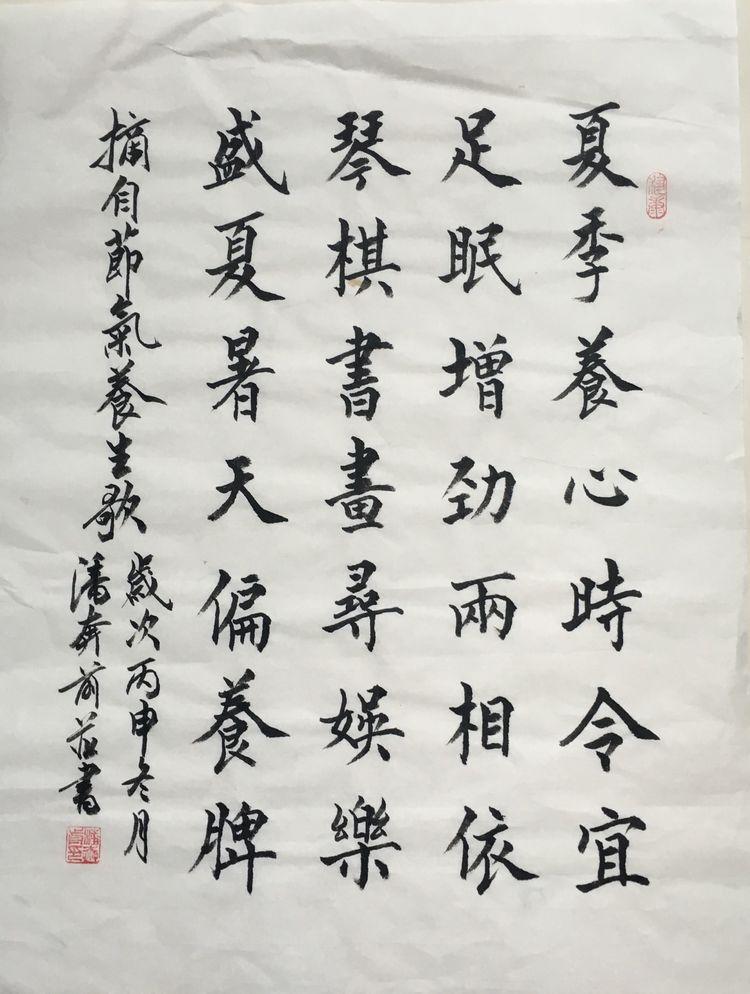 夏季養心時令宜
足眠增劲兩相依
琴棋書畫尋娛樂
盛夏暑天偏養脾
摘自節氣養生歌
歲次丙申冬月
潘奔前並書